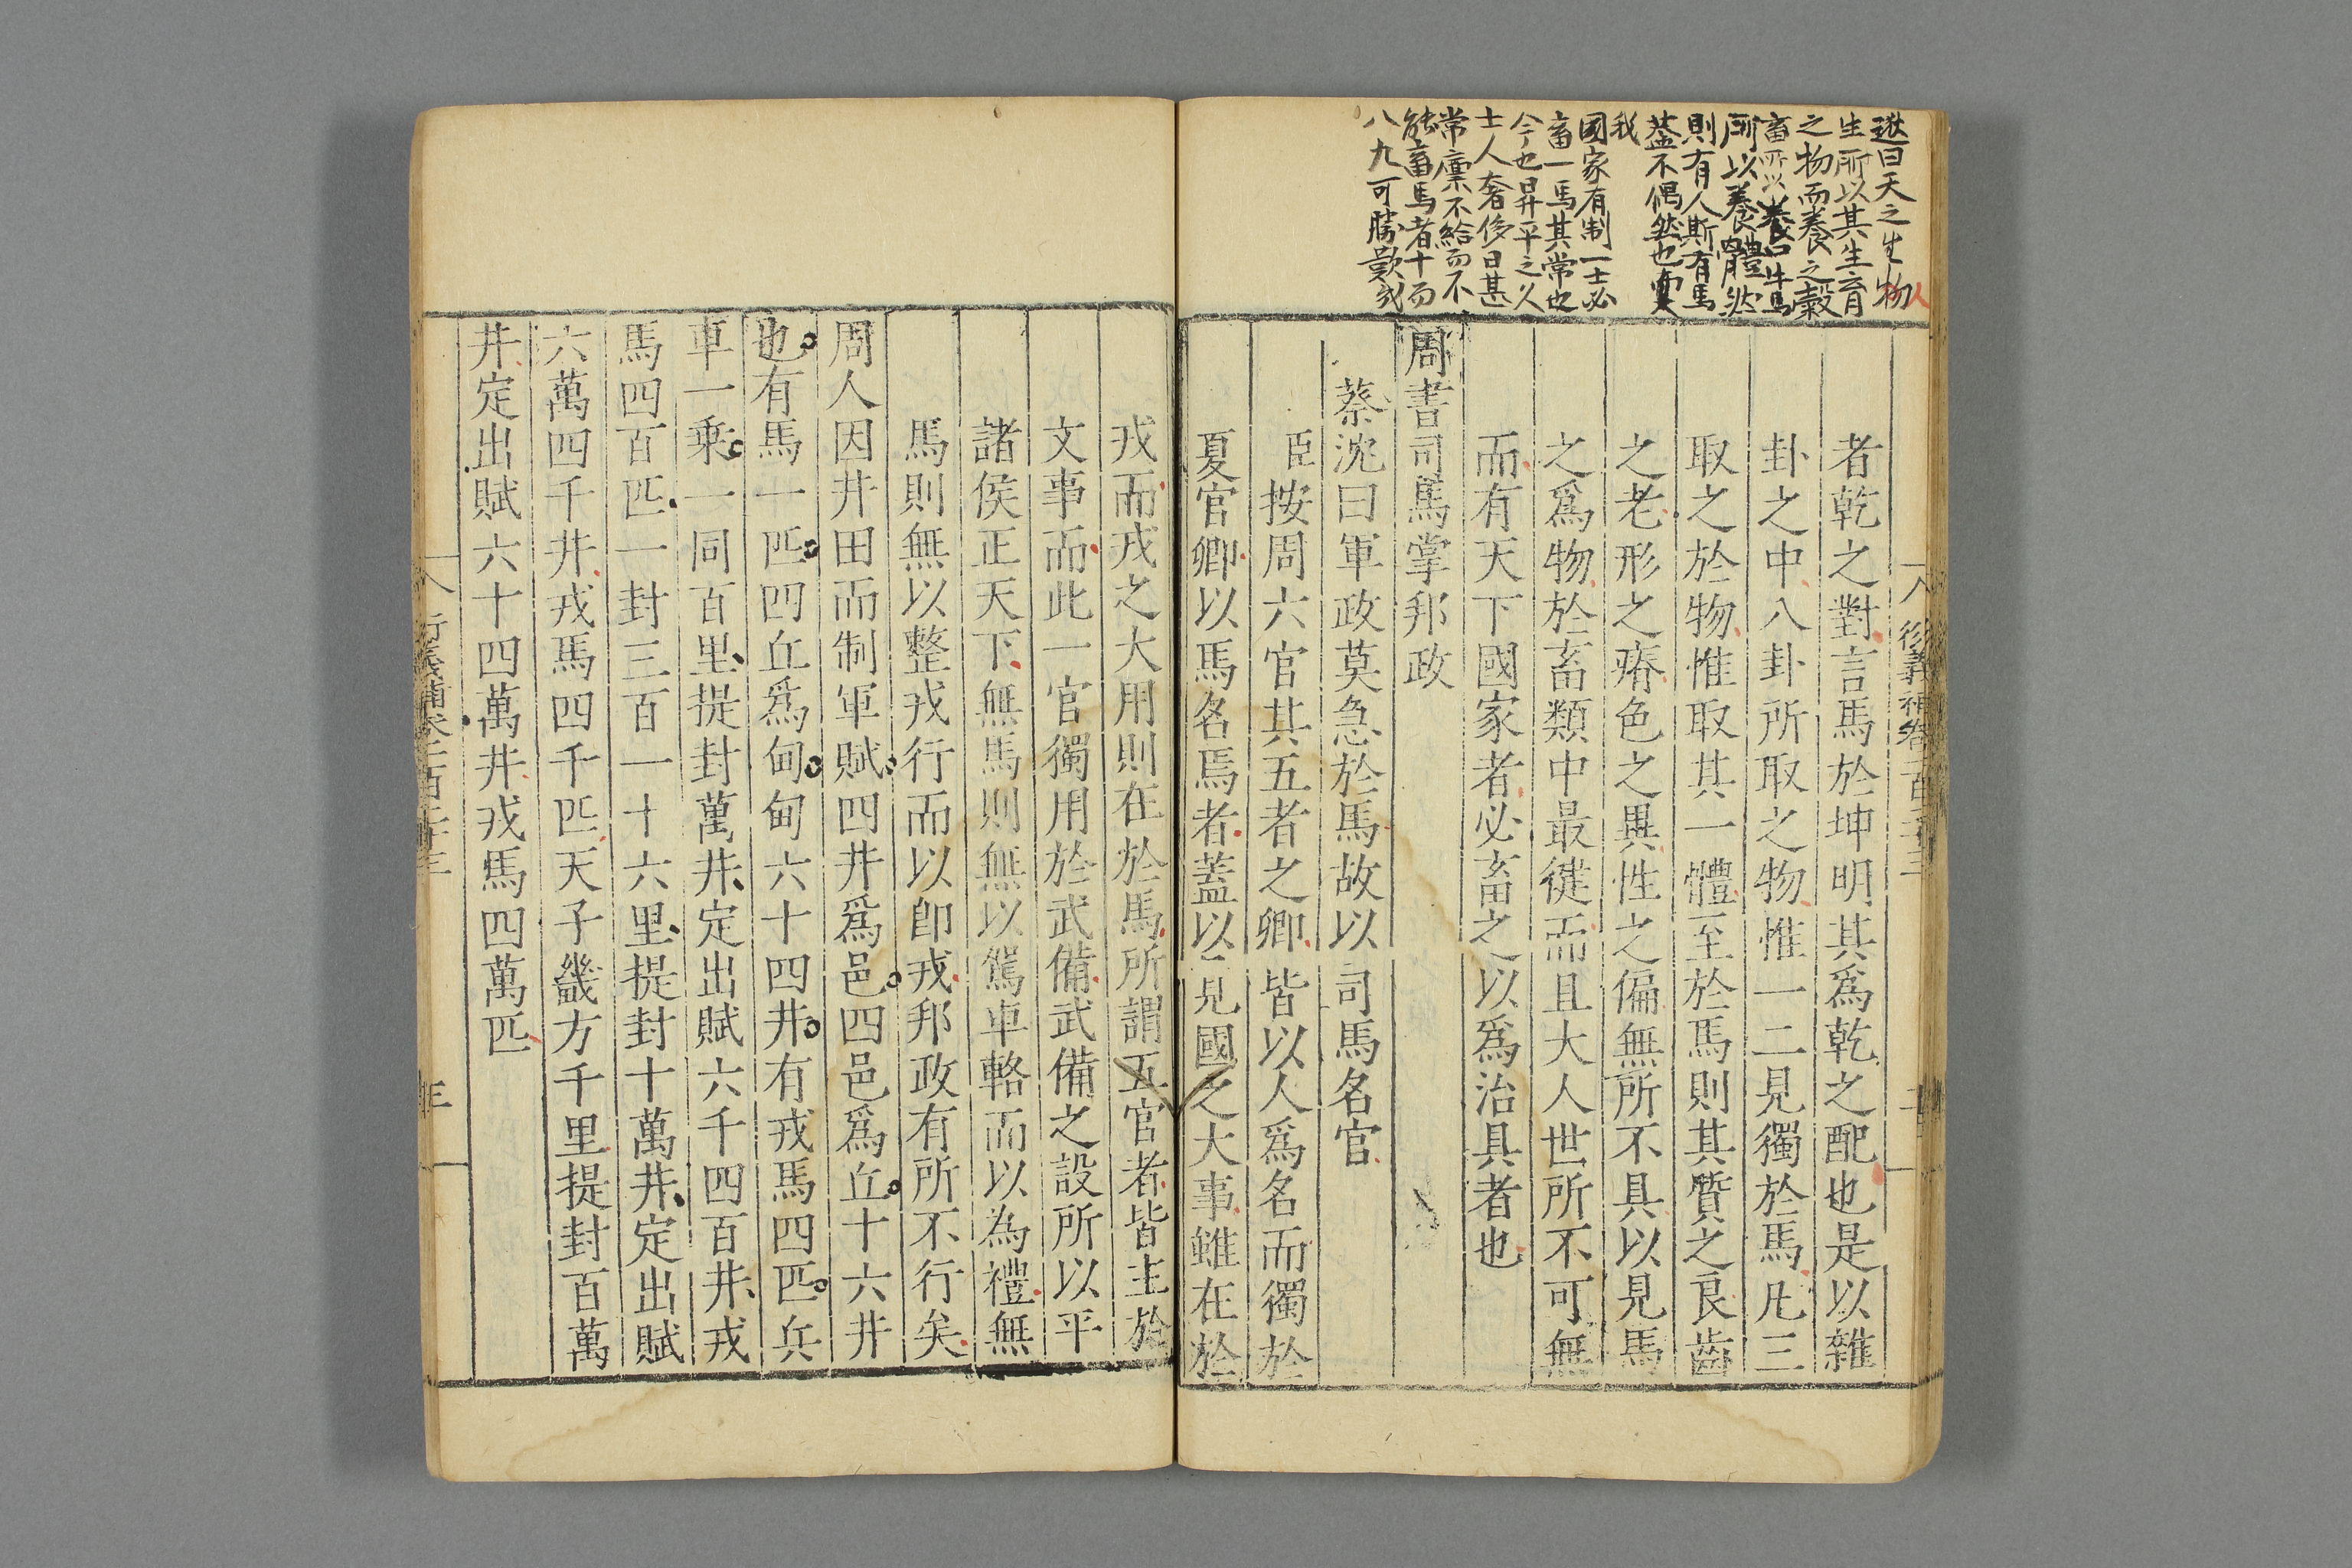 曰天之生物人
生所以其生育
之物而養之穀
畜所以養口牛馬
所以養體然
則有人斯有馬
蓋不偶然也
我
國家有制一士必
畜一馬其常也
今也昇平之久
士人奢侈日甚
常廩不給而不
能畜馬者十而
八九可勝歎哉
者乾之對言馬於坤明其爲乾之配也是以雜
卦之中八卦所取之物惟一二見獨於馬凡三
取之於物惟取其一體至於馬則其質之良齒
之老形之瘠色之異性之偏無所不具以見馬
之爲物於畜類中最徤而且大人世所不可無
而有天下國家者必畜之以爲治具者也
周書司馬掌邦政
蔡沈曰軍政莫急於馬故以司馬名官
臣按周六官其五者之卿皆以人爲名而獨於
夏官卿以馬名焉者蓋以見國之大事雖在於
戎而戎之大用則在於馬所謂五官者皆主於
文事而此一官獨用於武備武備之設所以平
諸侯正天下無馬則無以駕車輅而以為禮無
馬則無以整戎行而以卽戎邦政有所不行矣
周人因井田而制軍賦四井爲邑四邑爲丘十六井
也有馬一匹四丘爲甸甸六十四井有戎馬四匹兵
車一乗一同百里提封萬井定出賦六千四百井戎
馬四百匹一封三百一十六里提封十萬井定出賦
六萬四千井戎馬四千匹天子畿方千里提封百萬
井定出賦六十四萬井戎馬四萬匹